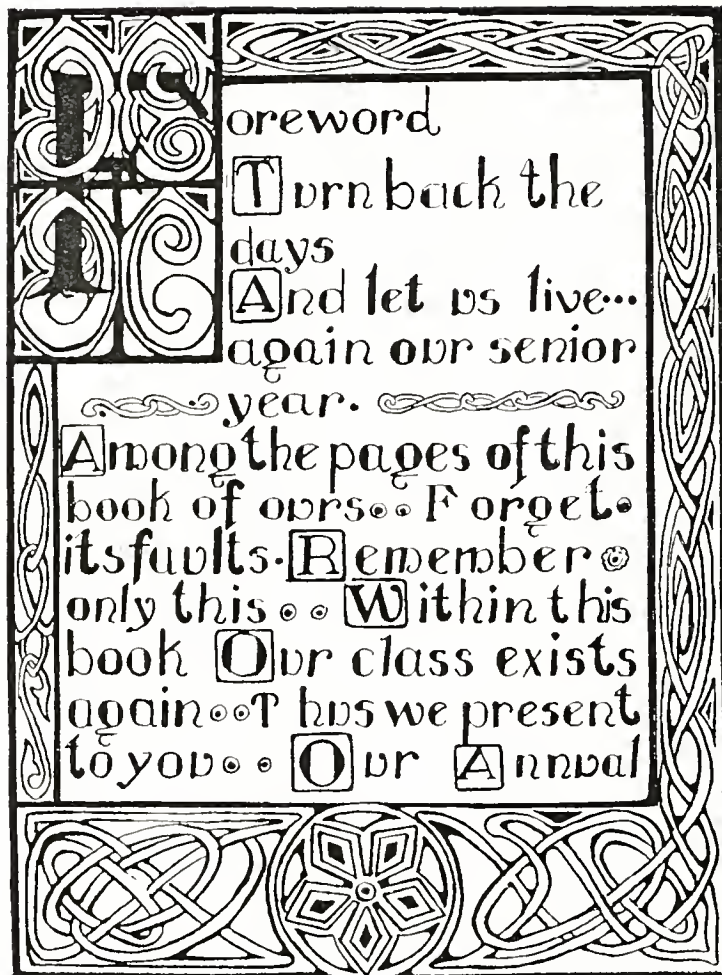 Foreword
Turn back the
days
And let us live...
again our senior
year.
Among the pages of this
book of ours.. Forget.
its faults. Remember
only this .. Within this
book Our class exists
again.. Thus we present
to you.. Our Annual